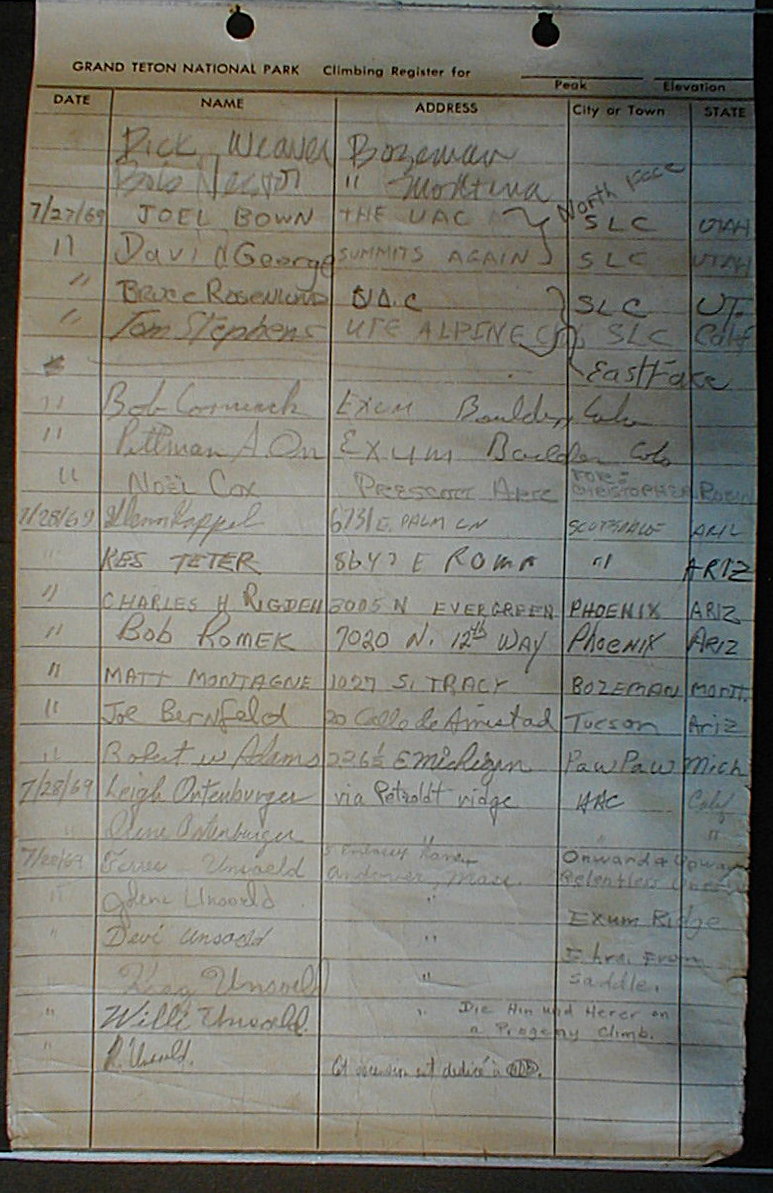 GRAND TETON NATIONAL PARK Climbing Register for
Peak Elevation
DATE NAME ADDRESS City or Town STATE
Dick Weaver Bozeman
Bob " Montana
North Face
7/27/69 JOEL BOWN THE UAC SLC UTAH
" David George SUMMITS AGAIN SLC UTAH
" Bruce U.A.C SLC UT.
" Tom Stephens UTE ALPINE SLC Calif
East Face
" Bob Cormack Exum Boulder, Colo
" Pittman A. Orr EXUM Boulder Colo
" NOEL COX PRESCOTT ARIZ FOR: CHRISTOPHER ROBIN
7/28/69 Glenn Kappel 6731 E. PALM LN SCOTTSDALE ARIZ
" KES TETER 8647 E ROMA " ARIZ
" CHARLES H RIGDEN 5005 N EVERGREEN PHOENIX ARIZ
" Bob ROMEK 7020 N. 12th WAY PhOENIX ARIZ
" MATT MONTAGNE 1027 S. TRACY BOZEMAN MONT.
" Joe Bernfeld 20 Calle de Amistad Tucson Ariz
" Robert W Adams 226½ E Michigan Paw Paw Mich
7/28/69 Leigh Ortenburger via Petzoldt ridge AAC Calif
" Irene Ortenburger " " "
7/28/69 Unsoeld Andover, Mass. Onward & Upward
Relentless
" Unsoeld "
Exum Ridge
" Devi Unsoeld " hrs. From
" Krag Unsoeld " Saddle.
" Willi Unsoeld " Die Hin und Herer on
a Progeny Climb.
" R. Unsoeld.